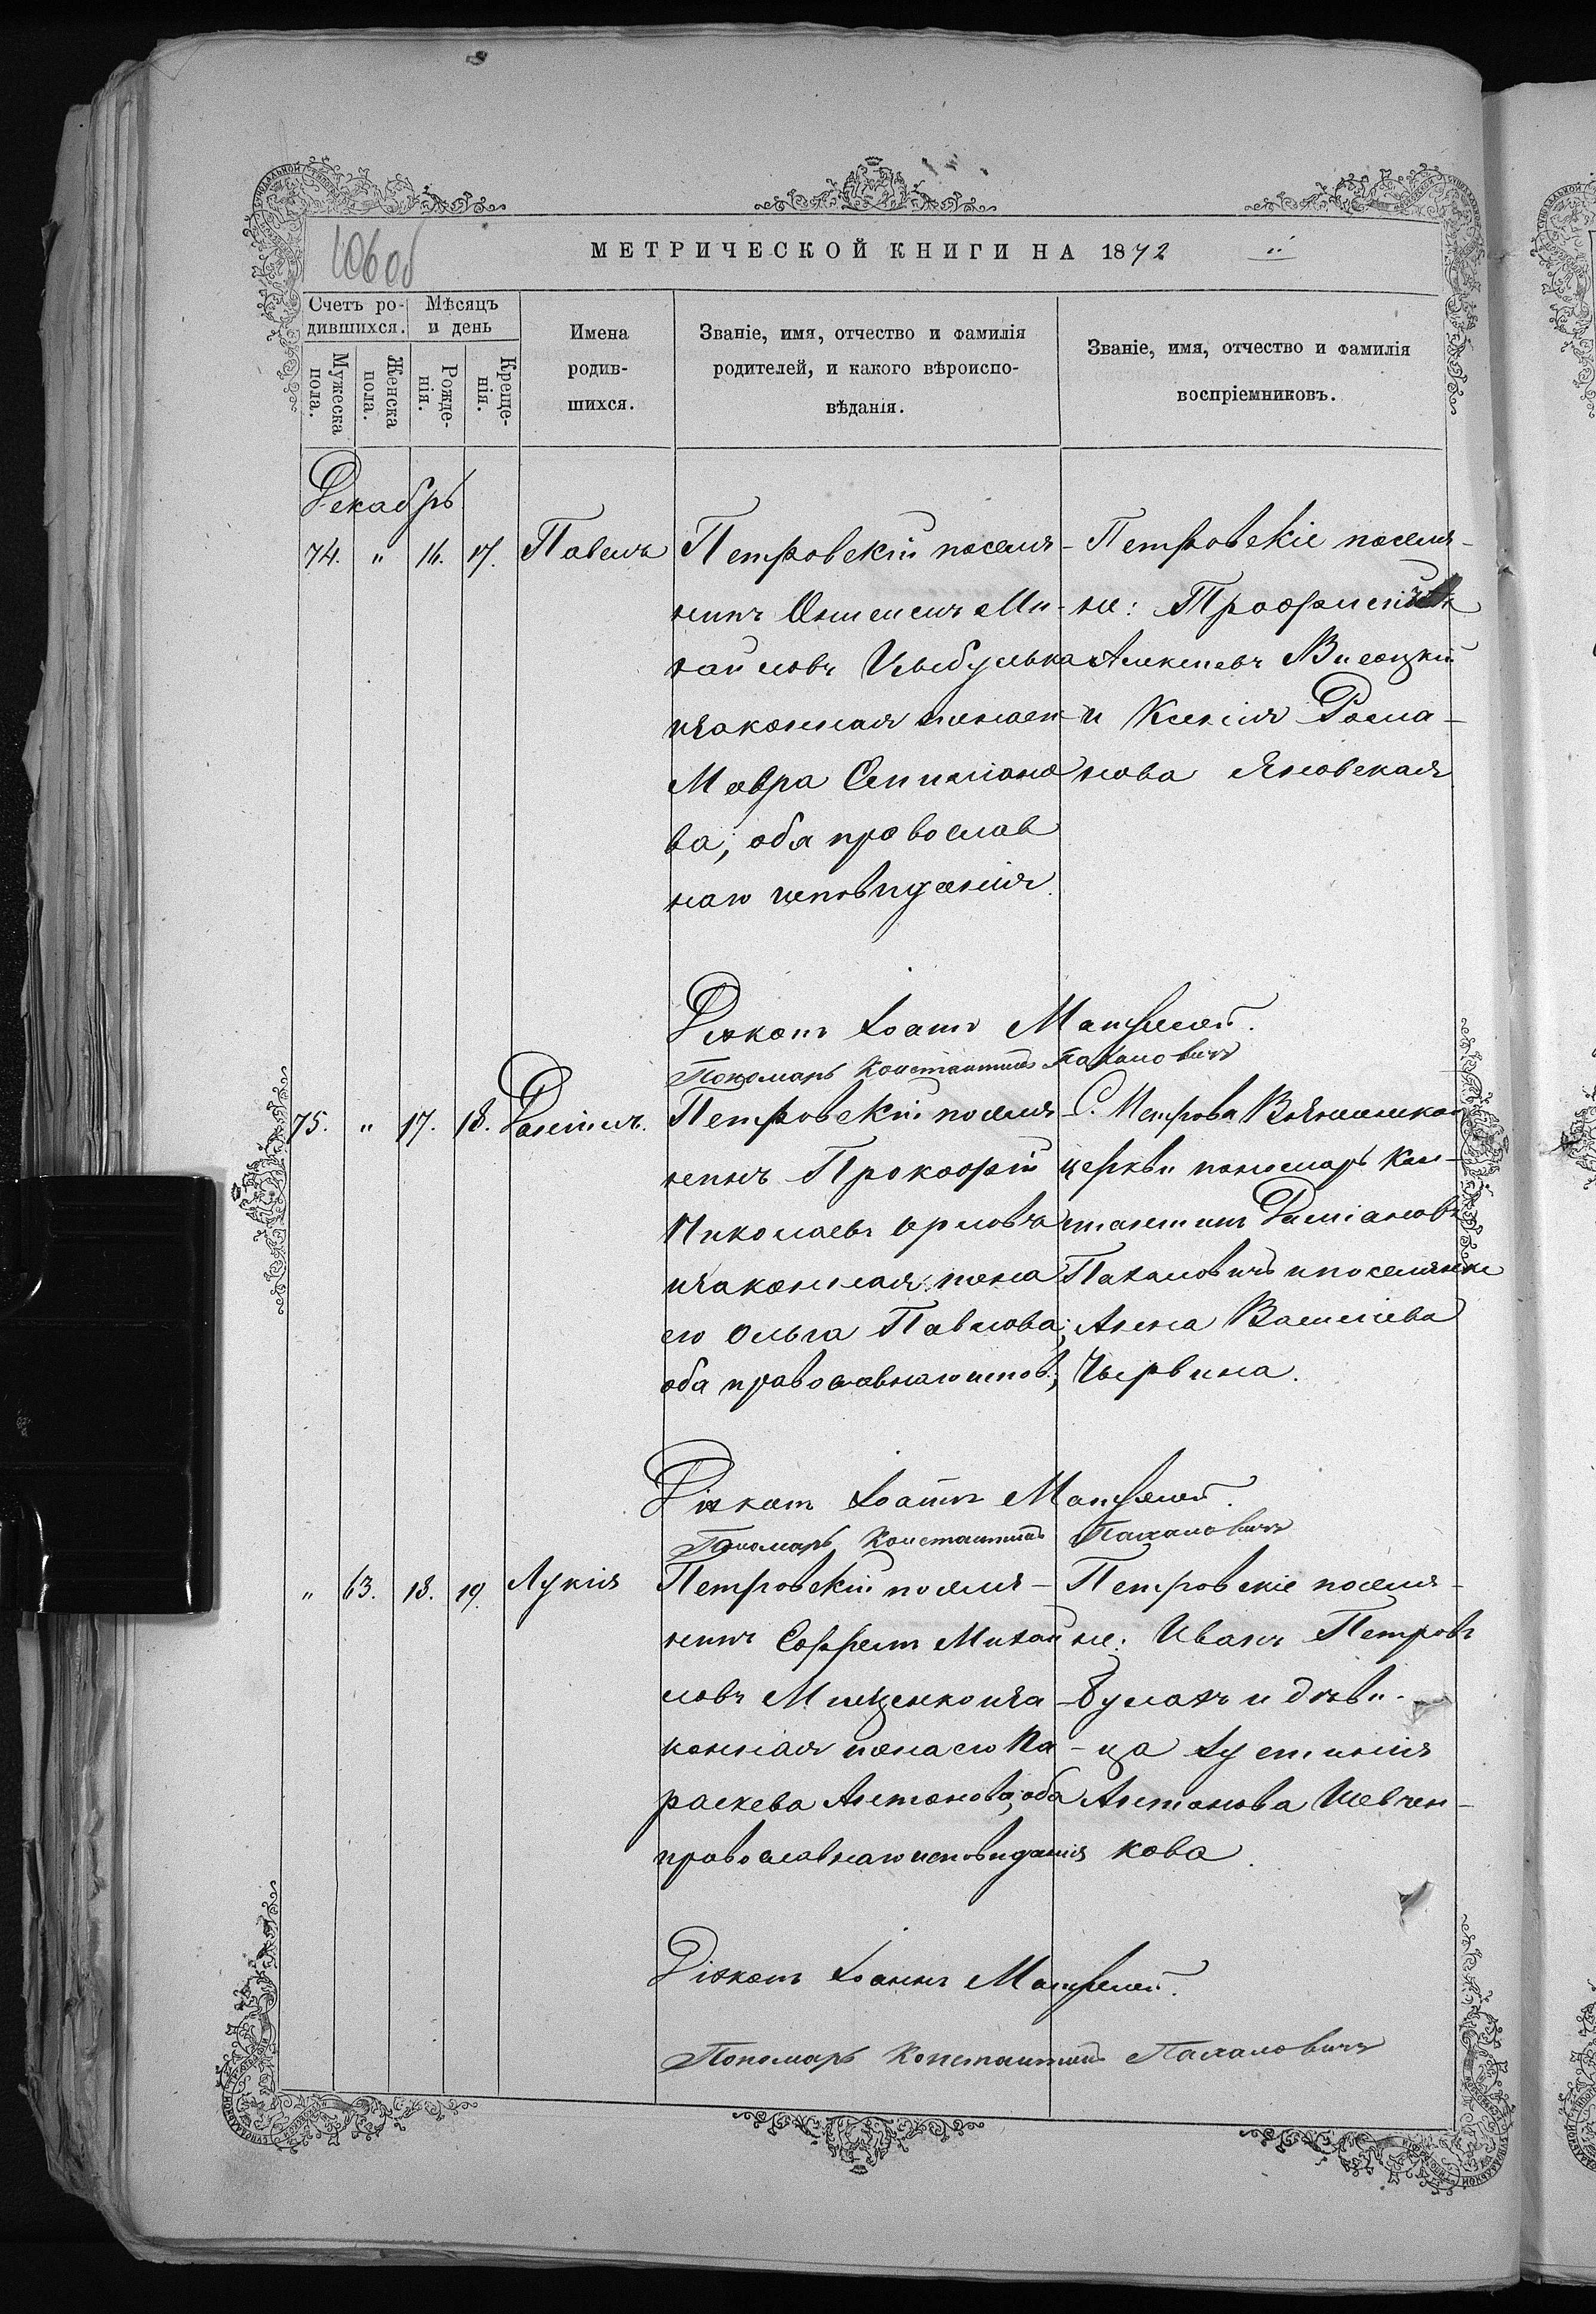 106 об
МЕТРИЧЕСКОЙ КНИГИ НА 1872
Счетъ ро-
дившихся.
Мѣсяцъ
и день
Мужеска
пола.
Женска
пола.
Рожде-
нія.
Креще-
нія.
Имена
родив-
шихся.
Званіе, имя, отчество и фамилія
родителей, и какого вѣроиспо-
вѣданія.
Званіе, имя, отчество и фамилія
воспріемниковъ.
Декабрь
74. " 16. 17. Павелъ
Петровскій поселя-
нинъ Ми-
хайловъ Цыбулька
изаконная
Мавра
ва; оба православ
наго исповѣданія.
Петровскіе поселя-
не:
Алексѣевъ Висоцкій
и Ксенія Рома-
нова Яновская
Діаконъ Іоаннъ
Пономарь Константинъ Пахаловичъ
75. " 17. 18. Даніилъ.
Петровскій поселя-
нинъ Прокофій
Николаевъ
изаконная жена
его Ольга Павлова;
оба православнаго испов.;
С. Петрова
церкви пономарь Кон-
стантинъ Даміановъ
Пахаловичъ и поселянка
Анна Василіева
Чырвина.
Діаконъ Іоаннъ
Пономарь Константинъ Пахаловичъ
" 63. 18. 19. Лукія
Петровскій поселя-
нинъ Михай
ловъ Мищенко иза-
конная жена его Па-
раскева Антонова, оба
православнаго исповѣданія
Петровскіе поселя-
не: Иванъ Петровъ
Булахъ и дѣви-
ца Іустинія
Антонова Шевчен-
кова.
Діаконъ Іоаннъ
Пономарь Константинъ Пахаловичъ